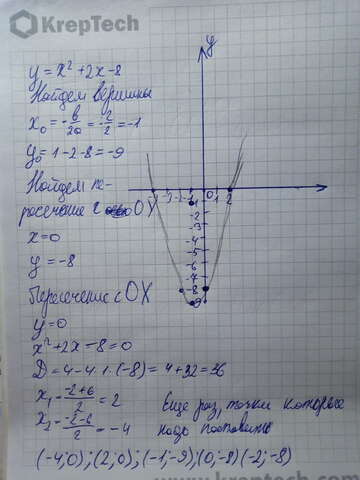 KrepTech
y = x² + 2x - 8
Найдем вершины
x₀ = -b/2a = -2/2 = -1
y₀ = 1 - 2 - 8 = -9
Найдем пе-
ресечение с OY
x = 0
y = -8
Пересечение с OX
y = 0
x² + 2x - 8 = 0
D = 4 - 4·1·(-8) = 4 + 32 = 36
x₁ = (-2+6)/2 = 2
x₂ = (-2-6)/2 = -4
Еще раз, точки которые
надо поставить
(-4;0); (2;0); (-1;-9); (0;-8) (-2;-8)
y
0 1 2
-1
-2
-3
-4
-5
-6
-7
-8
-9